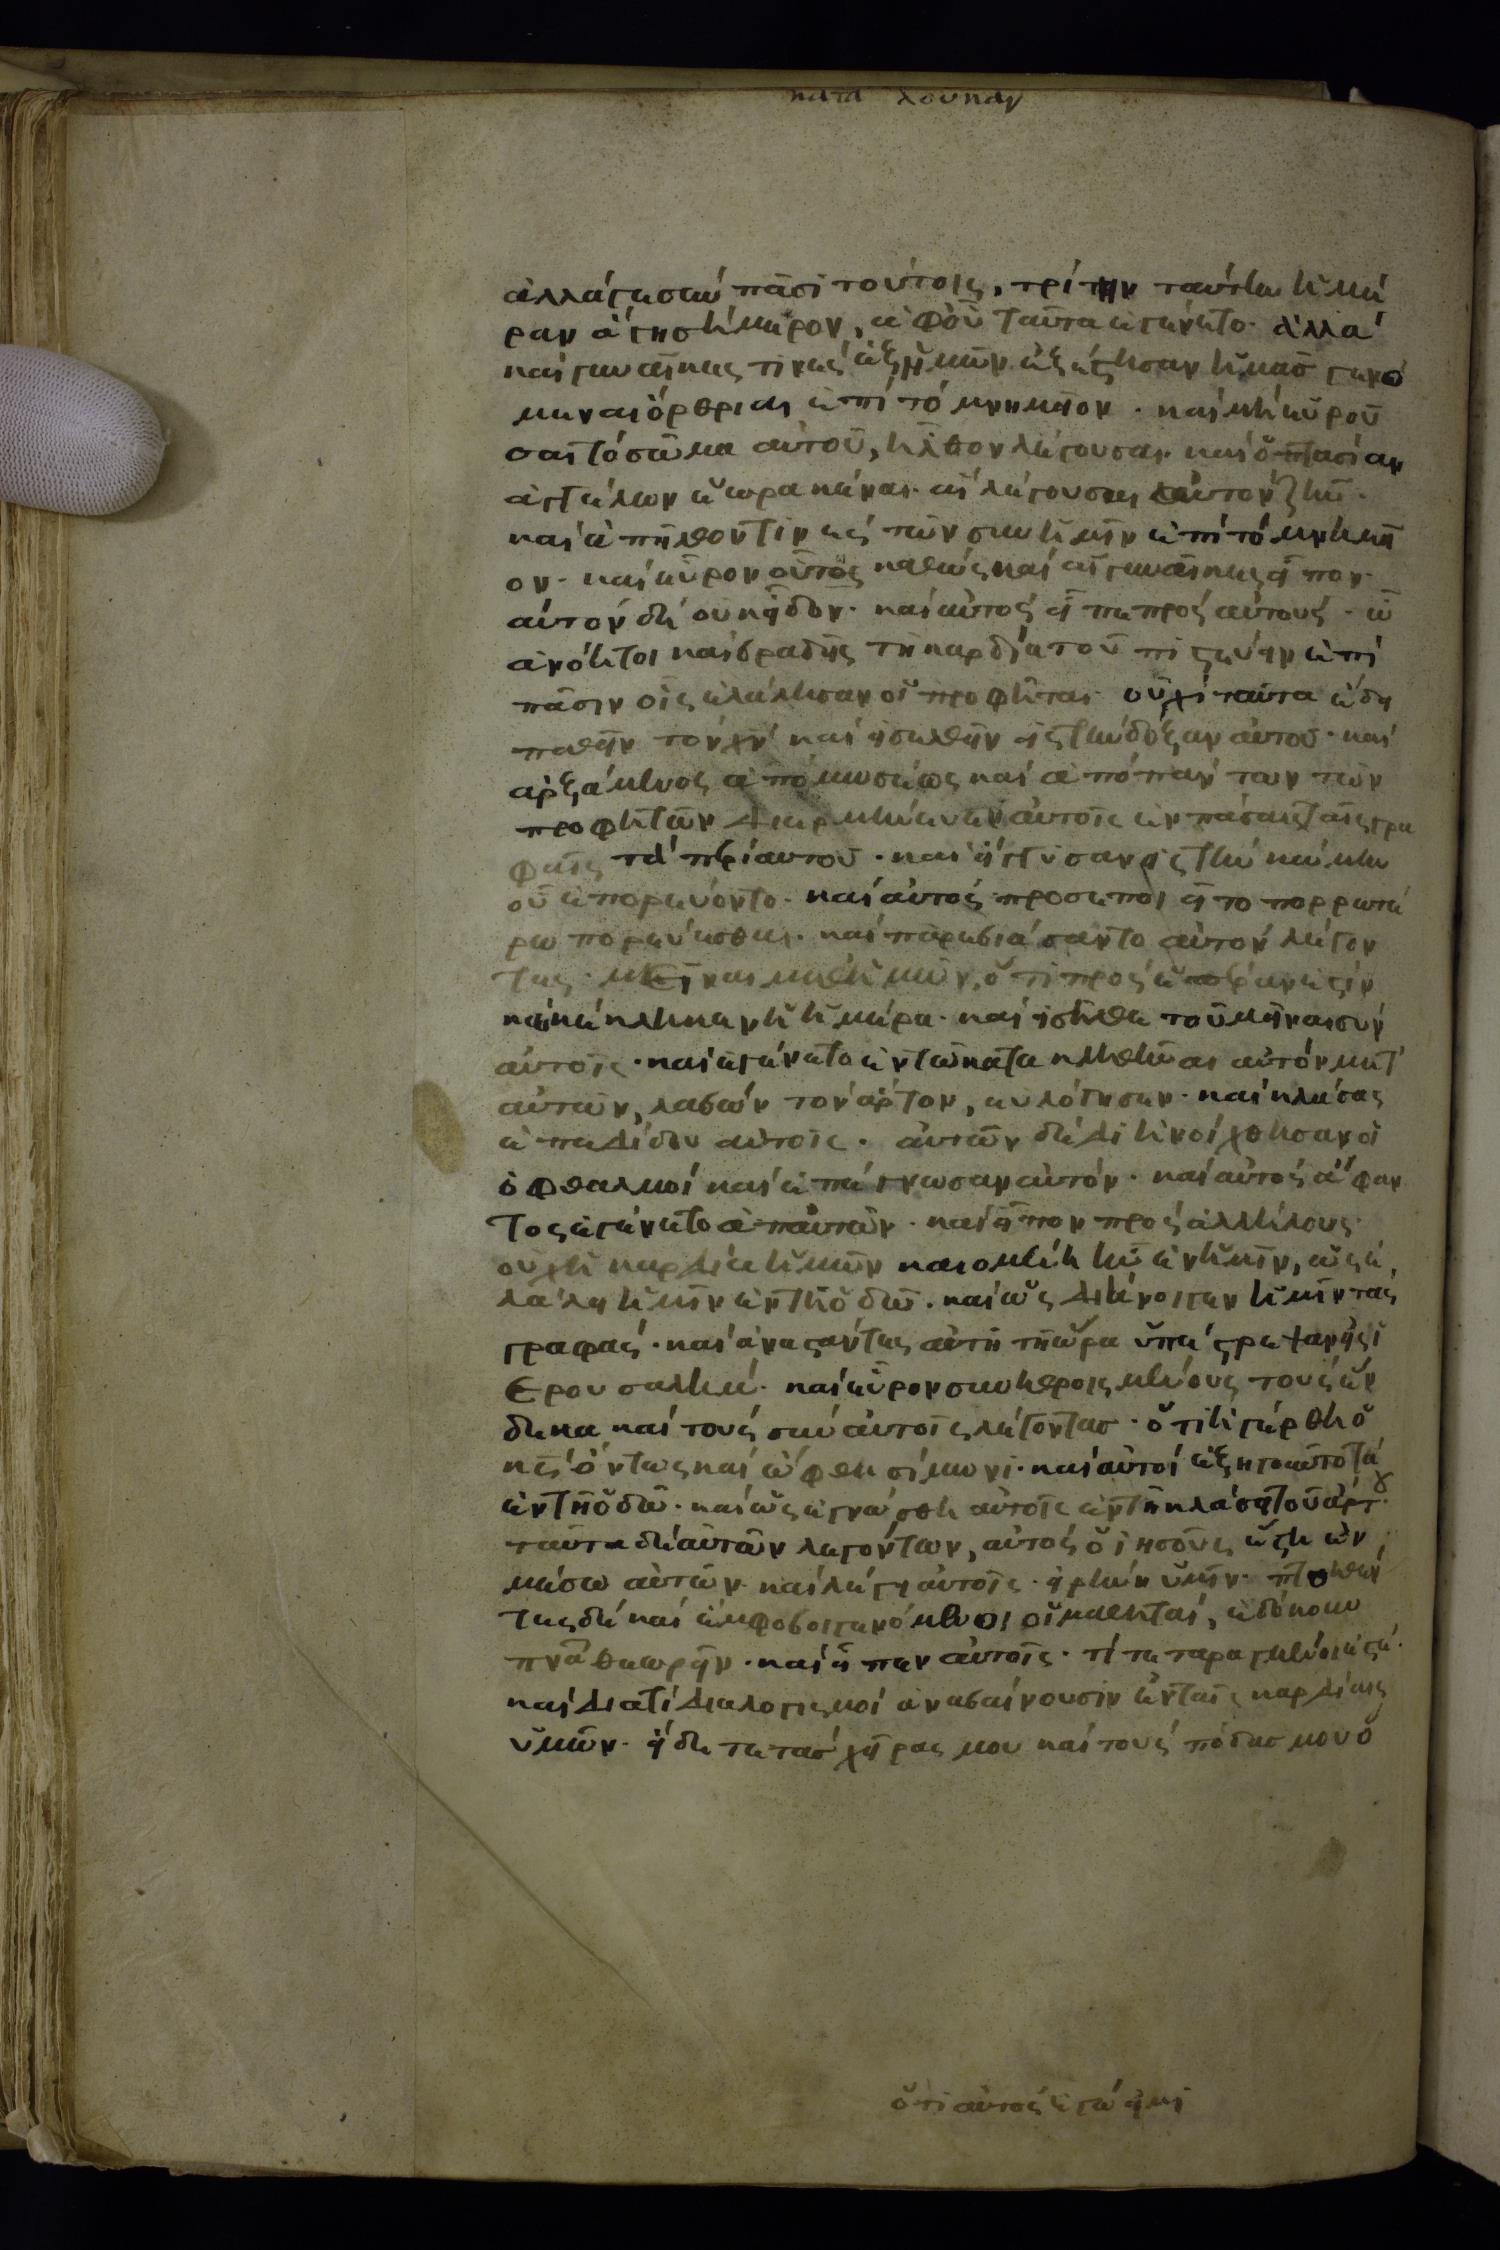 κατα λουκαν
ἀλλάγεσὺν πᾶσι τούτοις, τρίτην ταύτην ἡμέ
ραν ἄγεισήμερον, ἀφ οὗ ταῦτα ἐγένετο. ἀλλὰ
καὶ γυναῖκες τινὲς ἐξ ἡμῶν ἐξέστησαν ἡμᾶσ γενό
μεναι ὄρθριαι ἐπὶ τὸ μνημεῖον. καὶ μὴ εὑροῦ
σαι τὸ σῶμα αὐτοῦ, ἦλθον λέγουσαι καὶ ὀπτασίαν
ἀγγέλων ἑωρακέναι. οἳ λέγουσιν αὐτὸν ζῆν.
καὶ ἀπῆλθον τινὲς τῶν σὺν ἡμῖν ἐπὶ τὸ μνημεῖ
ον. καὶ εὗρον οὕτως καθὼς καὶ αἱ γυναῖκες εἶπον.
αὐτὸν δὲ οὐκ εἶδον. καὶ αὐτὸς εἶπε πρὸς αὐτούς. ὦ
ἀνόητοι καὶ βραδεῖς τῇ καρδία τοῦ πιστεύειν ἐπὶ
πᾶσιν οἷς ἐλάλησαν οἱ προφῆται. οὐχὶ ταῦτα ἔδει
παθεῖν τὸν χν καὶ εἰσελθεῖν εἰς τὴν δόξαν αὐτοῦ. καὶ
ἀρξάμενος ἀπὸ μωσέως καὶ ἀπὸ πάντων τῶν
προφητῶν διερμήνευεν αὐτοῖς ἐν πάσαις ταῖς γρα
φαῖς τὰ περὶ αυτοῦ. καὶ ἤγγισαν εἰς τὴν κώμην
οὗ ἐπορεύοντο. καὶ αὐτὸς προσεποιεῖτο πορρωτέ
ρω πορεύεσθαι. καὶ παρεβιάσαντο αὐτὸν λέγον
τες. μεῖναι μεθ ἡμῶν, ὅτι πρὸς ἑσπέραν ἐστὶν
καὶ κέκλικεν ἡ ἡμέρα. καὶ εἰσῆλθε τοῦ μεῖναι σὺν
αὐτοῖς. καὶ ἐγένετο ἐν τῶ κατακλιθῆναι αὐτὸν μετ
αὐτῶν, λαβὼν τὸν ἄρτον, εὐλόγησεν. καὶ κλάσας
ἐπεδίδου αὐτοῖς. αὐτῶν δὲ διηνοίχθησαν οἱ
ὀφθαλμοὶ καὶ ἐπέγνωσαν αὐτόν. καὶ αὐτὸς ἄφαν
τος ἐγένετο ἀπ αὐτῶν. καὶ εἶπον πρὸς ἀλλήλους.
οὐχὶ ἡ καρδία ἡμῶν καιομένη ἦν ἐν ἡμῖν, ὡς ἐ
λάλει ἡμῖν ἐν τῇ ὁδῶ. καὶ ὡς διήνοιγεν ἡμῖν τὰς
γραφάς. καὶ ἀναστάντες αὐτῇ τῇ ὥρα ὑπέστρεψαν εἰς ἱ
ερουσαλήμ. καὶ εὗρον συνηθροισμένους τοὺς ἕν
δεκα καὶ τοὺς σὺν αὐτοῖς λέγοντασ. ὅτι ἠγέρθη ὁ
κς ὄντως καὶ ὤφθη σίμωνι. καὶ αὐτοὶ ἐξηγοῦντο τὰ
ἐν τῇ ὁδῶ. καὶ ὡς ἐγνώσθη αὐτοῖς ἐν τῇ κλάσει τοῦ ἄρτου.
ταῦτα δὲ αὐτῶν λεγόντων, αὐτὸς ὁ ἰησοῦς ἔστη ἐν
μέσω αὐτῶν. καὶ λέγει αὐτοῖς. εἰρήνη ὑμῖν. πτοηθέν
τες δὲ καὶ ἔμφοβοι γενόμενοι οἱ μαθηταὶ, ἐδόκουν
πνα θεωρεῖν. καὶ εἶπεν αὐτοῖς. τί τεταραγμένοι ἐστέ.
καὶ διατί διαλογισμοὶ ἀναβαίνουσιν ἐν ταῖς καρδίαις
ὑμῶν. ἴδετε τασ χεῖρας μου καὶ τοὺς πόδασ μου ὅ
ὅτι αὐτὸς ἐγώ εἰμι